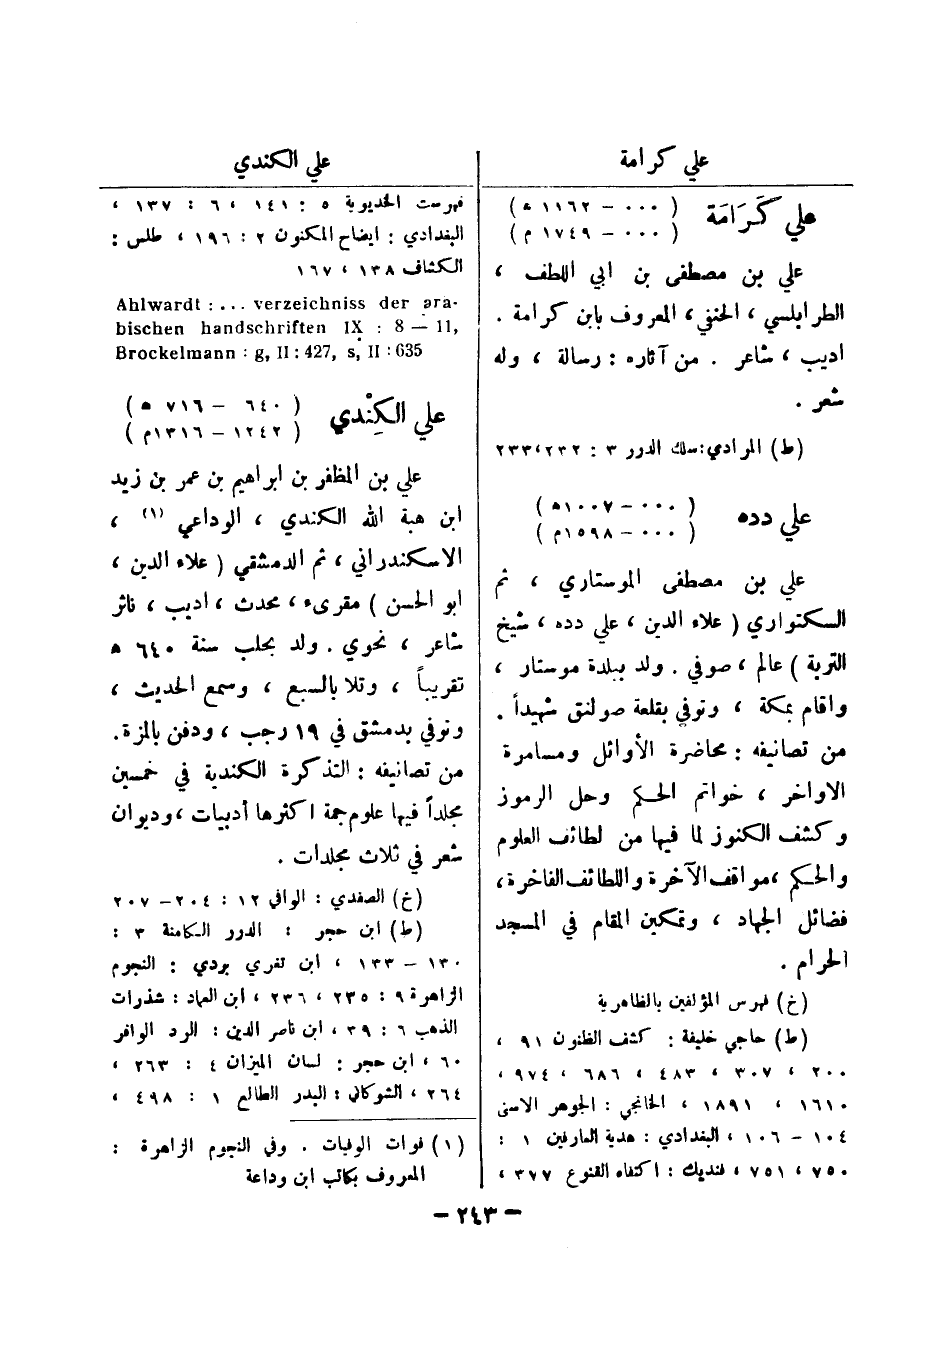 علي كرامة
علي كَرَامَة
( ٠٠٠ – ١١٦٢ هـ )
( ٠٠٠ – ١٧٤٩ م )
علي بن مصطفى بن ابي اللطف ،
الطرابلسي ، الحنفي ، المعروف بابن كرامة .
اديب ، شاعر . من آثاره : رسالة ، وله
شعر .
(ط) المرادي: سلك الدرر ٣ : ٢٣٢، ٢٣٣
علي دده
( ٠٠٠ – ١٠٠٧ هـ )
( ٠٠٠ – ١٥٩٨ م )
علي بن مصطفى الموستاري ، ثم
السكتواري ( علاء الدين ، علي دده ، شيخ
التربة ) عالم ، صوفي . ولد ببلدة موستار ،
واقام بمكة ، وتوفي بقلعة صولنق شهيداً .
من تصانيفه : محاضرة الأوائل ومسامرة
الاواخر ، خواتم الحكم وحل الرموز
وكشف الكنوز لما فيها من لطائف العلوم
والحكم ، مواقف الآخرة واللطائف الفاخرة ،
فضائل الجهاد ، وتمكين المقام في المسجد
الحرام .
(خ) فهرس المؤلفين بالظاهرية
(ط) حاجي خليفة : كشف الظنون ٩١ ،
٢٠٠ ، ٣٠٧ ، ٤٨٣ ، ٦٨٦ ، ٩٧٤ ،
١٦١٠ ، ١٨٩١ ، الخانجي : الجوهر الاسنى
١٠٤ – ١٠٦ ، البغدادي : هدية العارفين ١ :
٧٥٠ ، ٧٥١ ، فنديك : اكتفاء القنوع ٣٧٧ ،
علي الكندي
فهرست الخديوية ٥ : ١٤١ ، ٦ : ١٣٧ ،
البغدادي : ايضاح المكنون ٢ : ١٩٦ ، طلس :
الكشاف ١٣٨ ، ١٦٧
Ahlwardt : ... verzeichniss der ara-
bischen handschriften IX : 8 — 11,
Brockelmann : g, II : 427, s, II : 635
علي الكِنْدي
( ٦٤٠ – ٧١٦ هـ )
( ١٢٤٢ – ١٣١٦ م )
علي بن المظفر بن ابراهيم بن عمر بن زيد
ابن هبة الله الكندي ، الوداعي (١) ،
الاسكندراني ، ثم الدمشقي ( علاء الدين ،
ابو الحسن ) مقرىء ، محدث ، اديب ، ناثر
شاعر ، نحوي . ولد بحلب سنة ٦٤٠ هـ
تقريباً ، وتلا بالسبع ، وسمع الحديث ،
وتوفي بدمشق في ١٩ رجب ، ودفن بالمزة .
من تصانيفه : التذكرة الكندية في خمسين
مجلداً فيها علوم جمة اكثرها أدبيات ، وديوان
شعر في ثلاث مجلدات .
(خ) الصفدي : الوافي ١٢ : ٢٠٤ – ٢٠٧
(ط) ابن حجر : الدرر الكامنة ٣ :
١٣٠ – ١٣٣ ، ابن تغري بردي : النجوم
الزاهرة ٩ : ٢٣٥ ، ٢٣٦ ، ابن العماد : شذرات
الذهب ٦ : ٣٩ ، ابن ناصر الدين : الرد الوافر
٦٠ ، ابن حجر : لسان الميزان ٤ : ٢٦٣ ،
٢٦٤ ، الشوكاني : البدر الطالع ١ : ٤٩٨ ،
(١) فوات الوفيات . وفي النجوم الزاهرة :
المعروف بكاتب ابن وداعة
– ٢٤٣ –